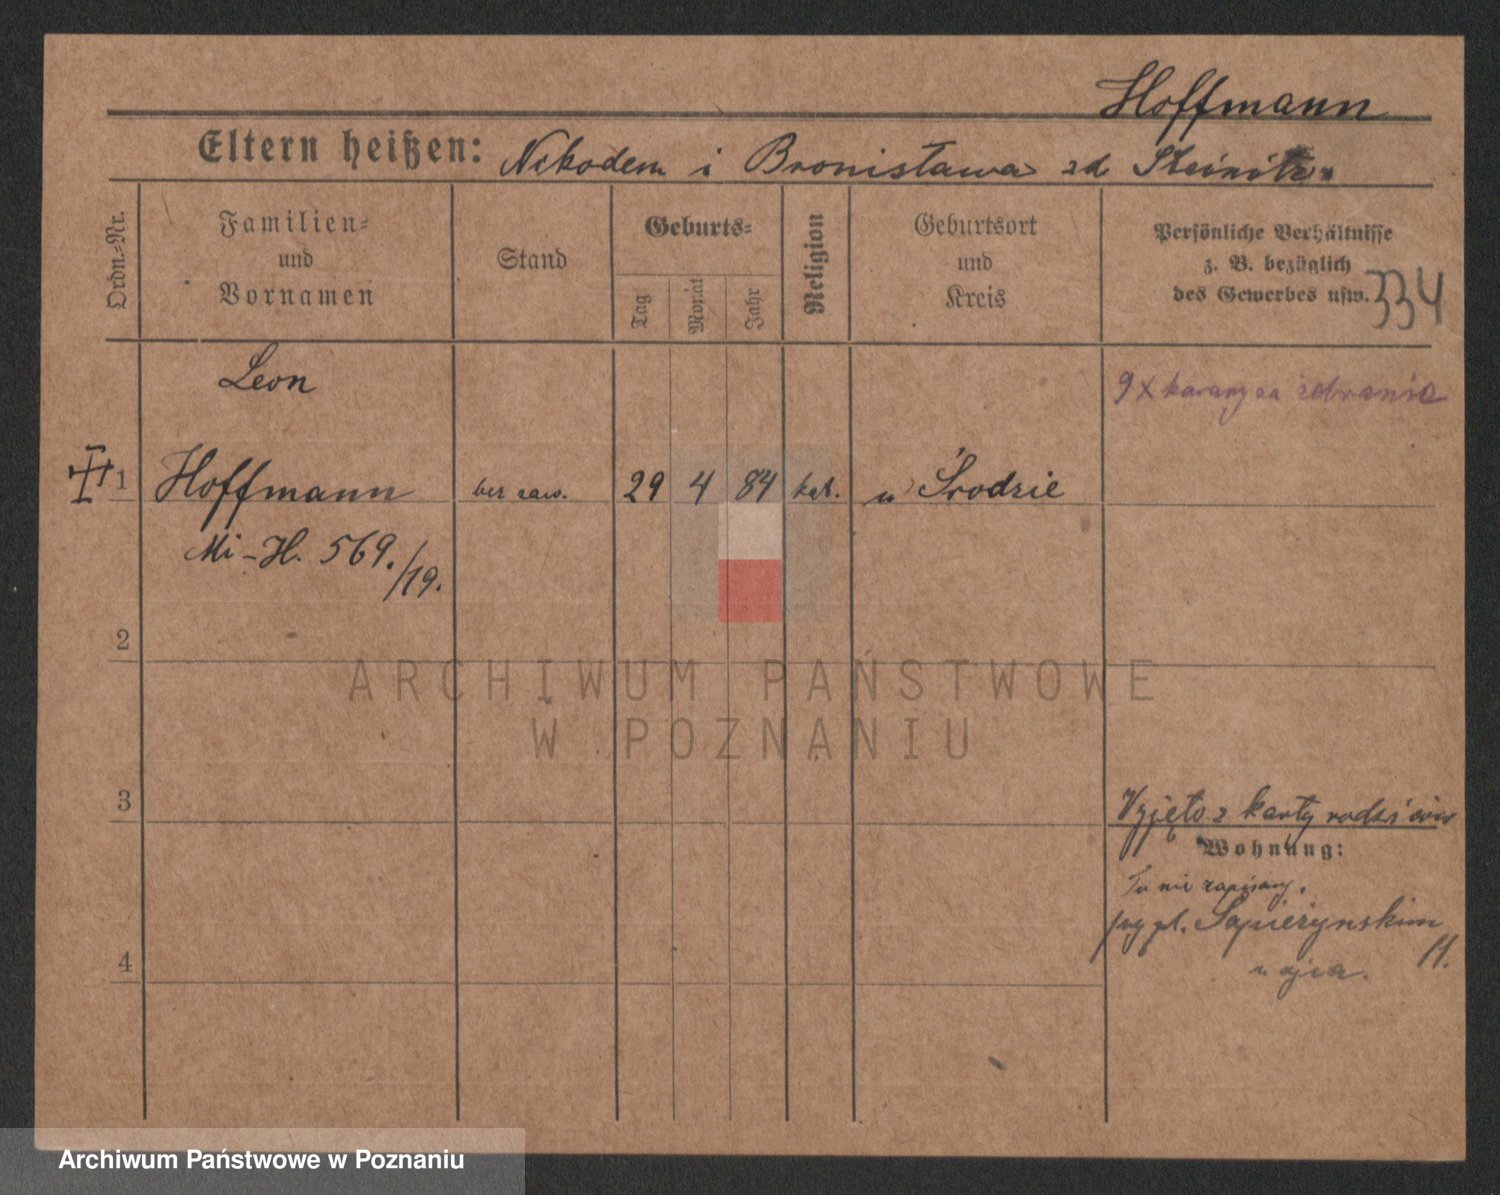 Hoffmann
Eltern heißen: Nikodem i Bronisława zd Steinitz
Ordn.-Nr.
Familien-
und
Vornamen
Stand
Geburts-
Tag
Monat
Jahr
Religion
Geburtsort
und
Kreis
Persönliche Verhältnisse
z. B. bezüglich
des Gewerbes usw.
334
Leon
9 x karany za żebranie
1 Hoffmann bez zaw. 29 4 84 kat. w Środzie
Mi-H. 569./19.
2
3
Wyjęto z karty rodziców
Wohnung:
Tu nie zapisany.
przy pl. Sapieżynskim
11.
u ojca.
4
ARCHIWUM PAŃSTWOWE
W POZNANIU
Archiwum Państwowe w Poznaniu